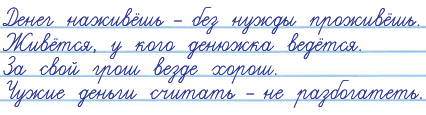 Денег наживёшь – без нужды проживёшь.
Живётся, у кого денюжка ведётся.
За свой грош везде хорош.
Чужие деньги считать – не разбогатеть.